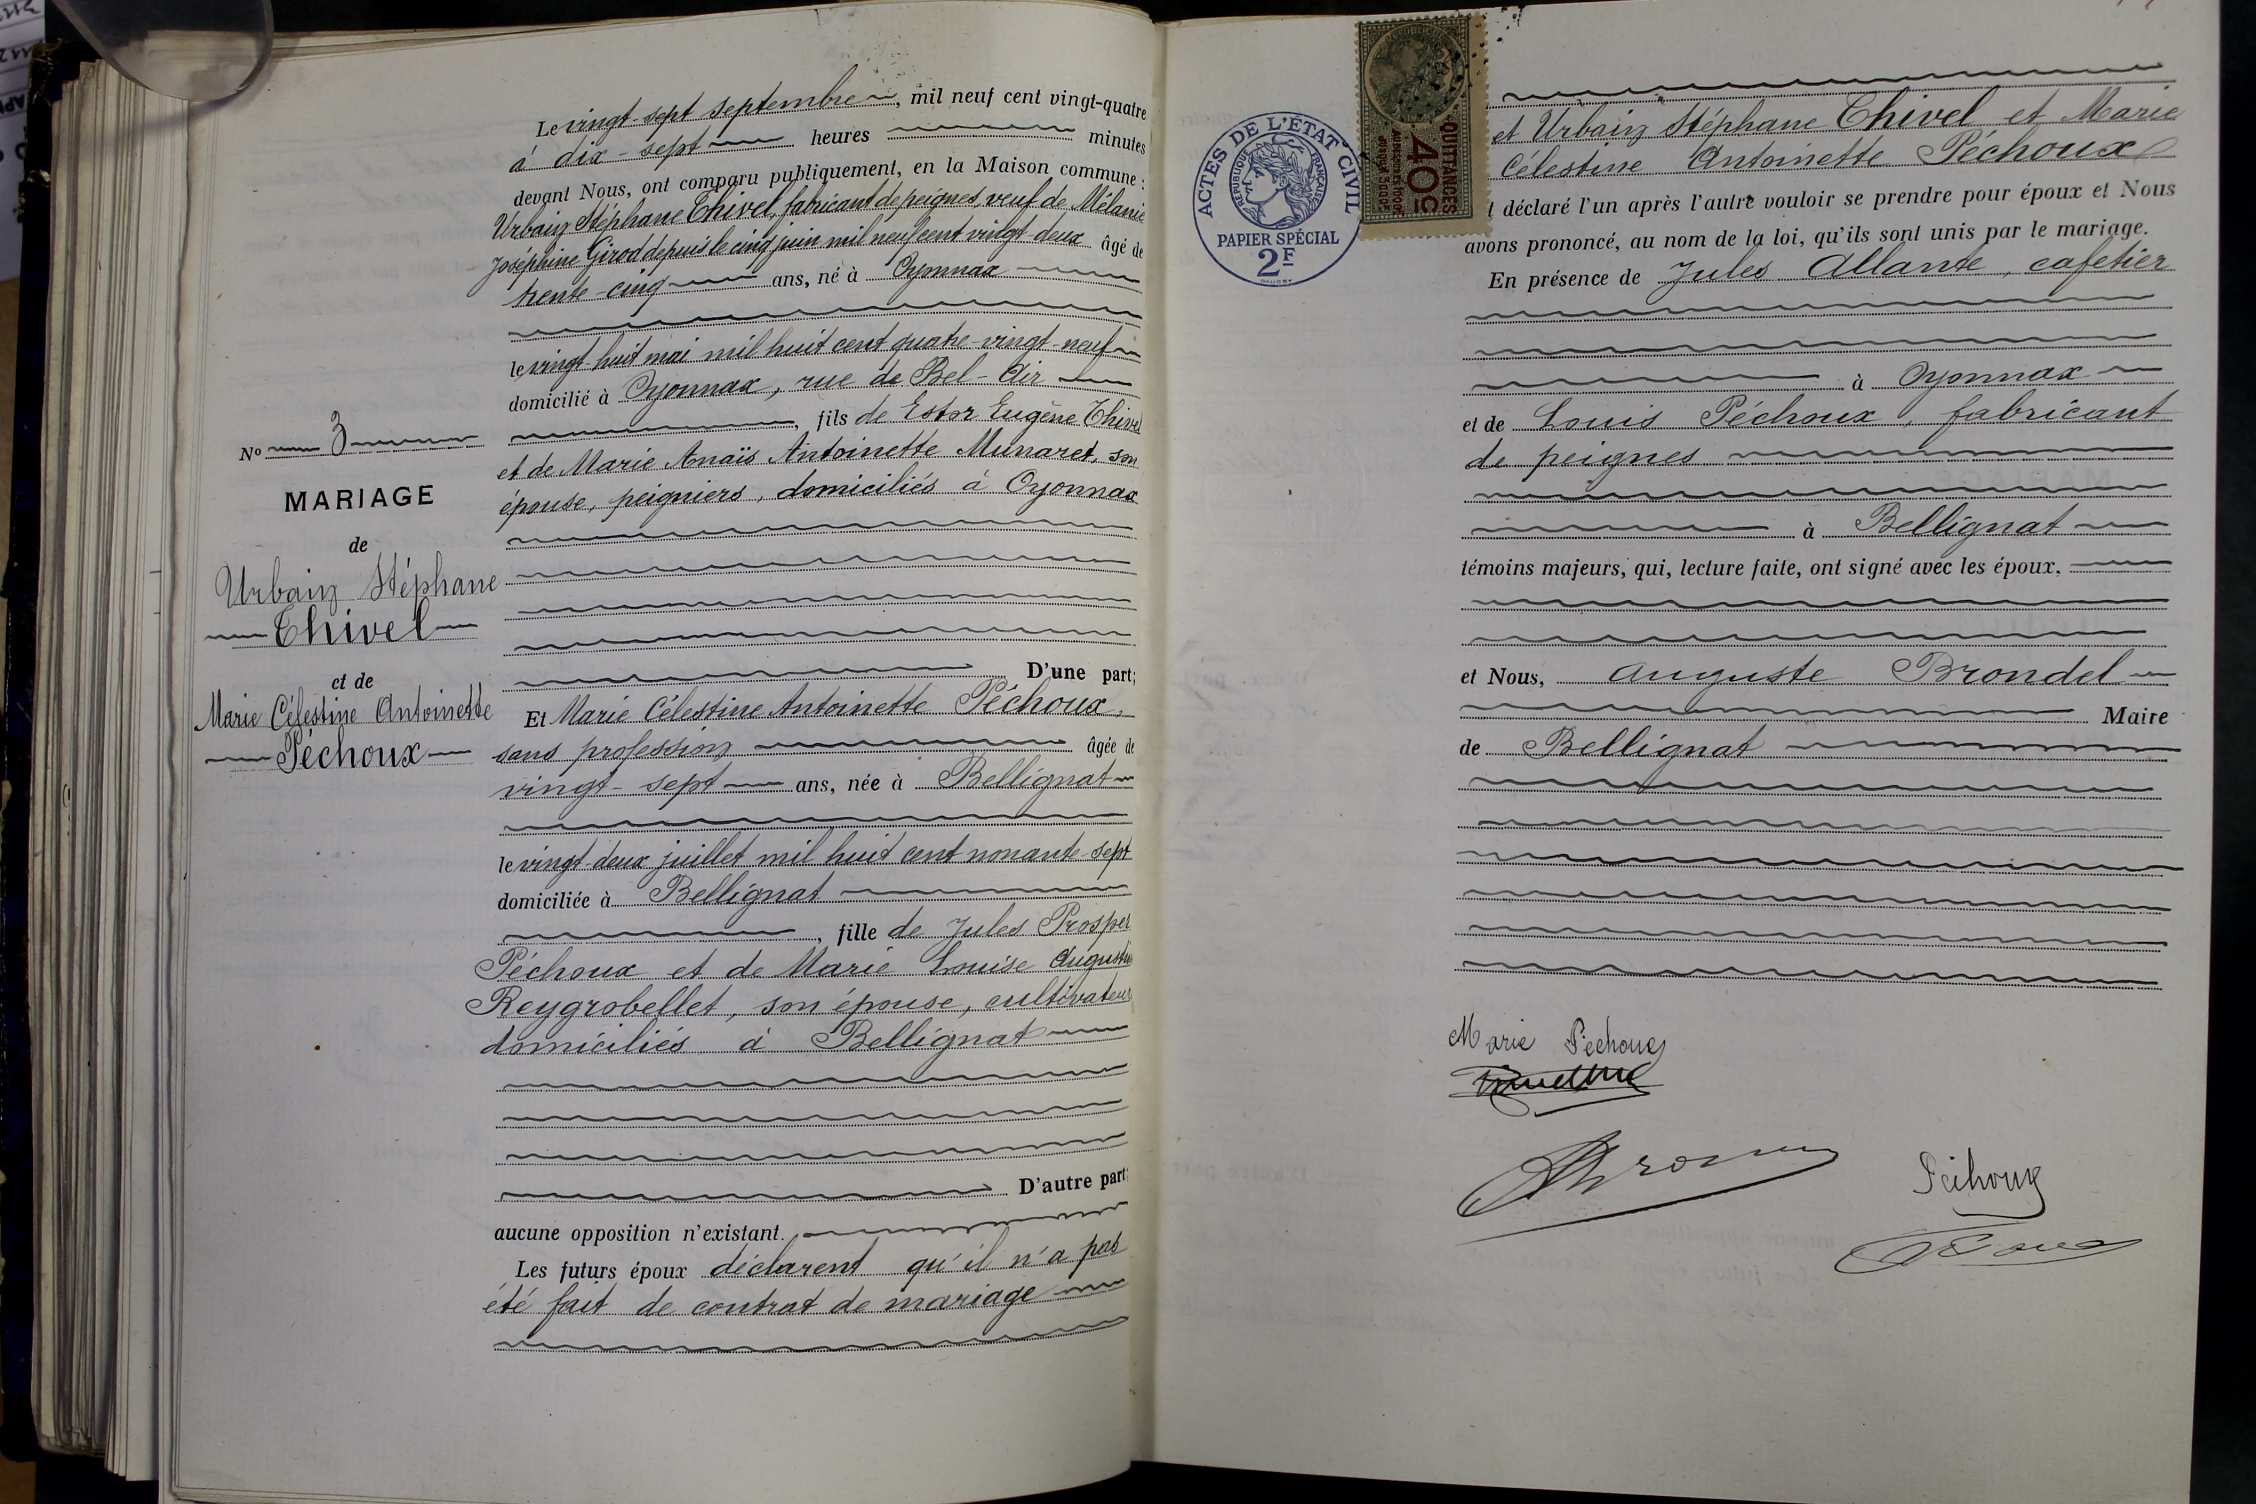 Le vingt-sept septembre, mil neuf cent vingt-quatre
à dix-sept heures minutes
devant Nous, ont comparu publiquement, en la Maison commune :
Urbain Stéphane Thivel, fabricant de peignes, veuf de Mélanie
Joséphine Girod depuis le cinq juin mil neuf cent vingt deux âgé de
trente-cinq ans, né à Oyonnax
le vingt-huit mai mil huit cent quatre-vingt-neuf
domicilié à Oyonnax, rue de Bel-Air
, fils de Ester Eugène Thivel
et de Marie Anaïs Antoinette Munaret, son
épouse, peigniers, domiciliés à Oyonnax
D'une part;
Et Marie Célestine Antoinette Péchoux,
sans profession âgée de
vingt-sept ans, née à Bellignat
le vingt-deux juillet mil huit cent nonante-sept
domiciliée à Bellignat
, fille de Jules Prosper
Péchoux et de Marie Louise Augustine
Reygrobellet, son épouse, cultivateurs
domiciliés à Bellignat
D'autre part;
aucune opposition n'existant.
Les futurs époux déclarent qu'il n'a pas
été fait de contrat de mariage
No 3
MARIAGE
de
Urbain Stéphane
Thivel
et de
Marie Célestine Antoinette
Péchoux
ACTES DE L'ÉTAT CIVIL
RÉPUBLIQUE FRANÇAISE
PAPIER SPÉCIAL
2F
QUITTANCES
40c
et Urbain Stéphane Thivel et Marie
Célestine Antoinette Péchoux
t déclaré l'un après l'autre vouloir se prendre pour époux et Nous
avons prononcé, au nom de la loi, qu'ils sont unis par le mariage.
En présence de Jules Allante, cafetier
à Oyonnax
et de Louis Péchoux, fabricant
de peignes
à Bellignat
témoins majeurs, qui, lecture faite, ont signé avec les époux,
et Nous, Auguste Brondel
Maire
de Bellignat
Marie Péchoux
Péchoux